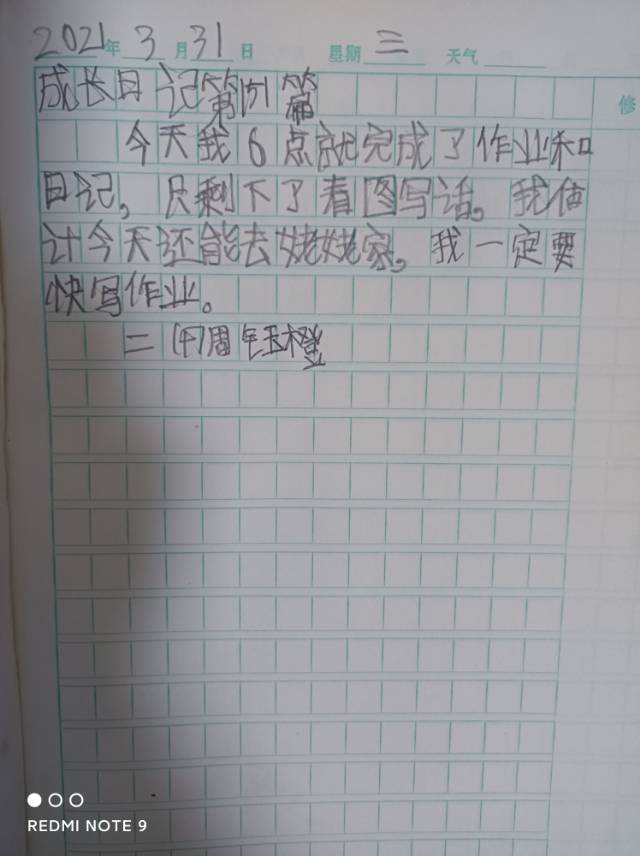 2021年 3月31日 星期 三 天气
成长日记第151篇
修
今天我6点就完成了作业和
日记,只剩下了看图写话。我估
计今天还能去姥姥家。我一定要
快写作业。
二(4)周钰橙
REDMI NOTE 9